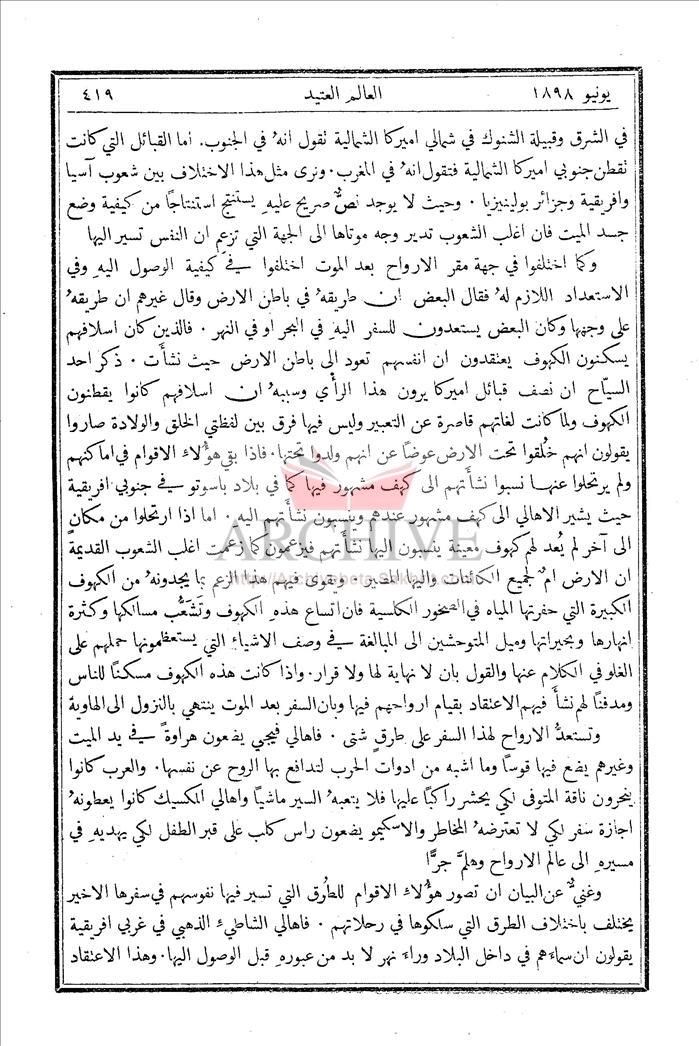 يونيو ١٨٩٨ العالم العتيد ٤١٩
في الشرق وقبيلة الشنوك في شمالي اميركا الشمالية نقول انهُ في الجنوب. اما القبائل التي كانت
نقطن جنوبي اميركا الشمالية فتقول انهُ في المغرب. ونرى مثل هذا الاختلاف بين شعوب آسيا
وافريقية وجزائر بولينيزيا. وحيث لا يوجد نصٌّ صريح عليهِ يستنتج استنتاجًا من كيفية وضع
جسد الميت فان اغلب الشعوب تدير وجه موتاها الى الجهة التي تزعم ان النفس تسير اليها
وكما اختلفوا في جهة مقر الارواح بعد الموت اختلفوا في كيفية الوصول اليهِ وفي
الاستعداد اللازم لهُ فقال البعض ان طريقهُ في باطن الارض وقال غيرهم ان طريقهُ
على وجهها وكان البعض يستعدون للسفر اليهِ في البحر او في النهر. فالذين كان اسلافهم
يسكنون الكهوف يعتقدون ان انفسهم تعود الى باطن الارض حيث نشأت. ذكر احد
السيّاح ان نصف قبائل اميركا يرون هذا الرأي وسببهُ ان اسلافهم كانوا يقطنون
الكهوف ولما كانت لغاتهم قاصرة عن التعبير وليس فيها فرق بين لفظتي الخلق والولادة صاروا
يقولون انهم خُلقوا تحت الارض عوضًا عن انهم ولدوا تحتها. فاذا بقي هؤلاء الاقوام في اماكنهم
ولم يرتحلوا عنها نسبوا نشأتهم الى كهف مشهور فيها كما في بلاد باسوتو في جنوبي افريقية
حيث يشير الاهالي الى كهف مشهور عندهم وينسبون نشأتهم اليه. اما اذا ارتحلوا من مكانٍ
الى آخر لم يُعد لهم كهوف معينة ينسبون اليها نشأتهم فيزعمون كما زعمت اغلب الشعوب القديمة
ان الارض امٌّ لجميع الكائنات واليها المصير. ويقوى فيهم هذا الزعم بما يجدونهُ من الكهوف
الكبيرة التي حفرتها المياه في الصخور الكلسية فان اتساع هذهِ الكهوف وتَشَعُّب مسالكها وكثرة
انهارها وبحيراتها وميل المتوحشين الى المبالغة في وصف الاشياء التي يستعظمونها حملهم على
الغلو في الكلام عنها والقول بان لا نهاية لها ولا قرار. واذا كانت هذه الكهوف مسكنًا للناس
ومدفنًا لهم نشأ فيهم الاعتقاد بقيام ارواحهم فيها وبان السفر بعد الموت ينتهي بالنزول الى الهاوية
وتستعدُّ الارواح لهذا السفر على طرقٍ شتى. فاهالي فيجي يضعون هراوةً في يد الميت
وغيرهم يضع فيها قوسًا وما اشبه من ادوات الحرب لتدافع بها الروح عن نفسها. والعرب كانوا
ينحرون ناقة المتوفى لكي يحشر راكبًا عليها فلا يتعبهُ السير ماشيًا واهالي المكسيك كانوا يعطونهُ
اجازة سفر لكي لا تعترضهُ المخاطر والاسكيمو يضعون راس كلب على قبر الطفل لكي يهديهِ في
مسيرهِ الى عالم الارواح وهلمَّ جرًّا
وغنيٌّ عن البيان ان تصور هؤلاء الاقوام للطُرق التي تسير فيها نفوسهم في سفرها الاخير
يختلف باختلاف الطرق التي سلكوها في رحلاتهم. فاهالي الشاطئ الذهبي في غربي افريقية
يقولون ان سماءهم في داخل البلاد وراء نهر لا بد من عبورهِ قبل الوصول اليها. وهذا الاعتقاد
ARCHIVE